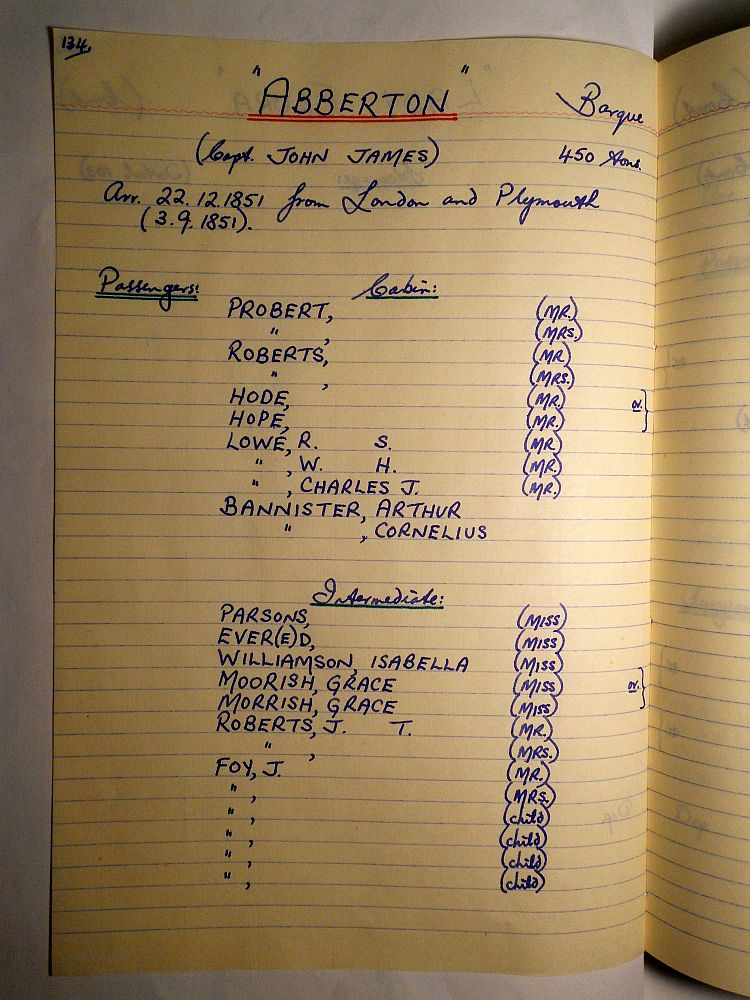 134.
"ABBERTON" Barque
(Capt. JOHN JAMES) 450 tons.
Arr. 22.12.1851 from London and Plymouth
(3.9.1851).
Passengers: Cabin:
PROBERT, (MR.)
" , (MRS.)
ROBERTS, (MR.)
" , (MRS.)
HODE, (MR.) or }
HOPE, (MR.)
LOWE, R. S. (MR.)
" , W. H. (MR.)
" , CHARLES J. (MR.)
BANNISTER, ARTHUR
" , CORNELIUS
Intermediate:
PARSONS, (MISS)
EVER(E)D, (MISS)
WILLIAMSON, ISABELLA (MISS)
MOORISH, GRACE (MISS) or }
MORRISH, GRACE (MISS)
ROBERTS, J. T. (MR.)
" , (MRS.)
FOY, J. (MR.)
" , (MRS.)
" , (child)
" , (child)
" , (child)
" , (child)